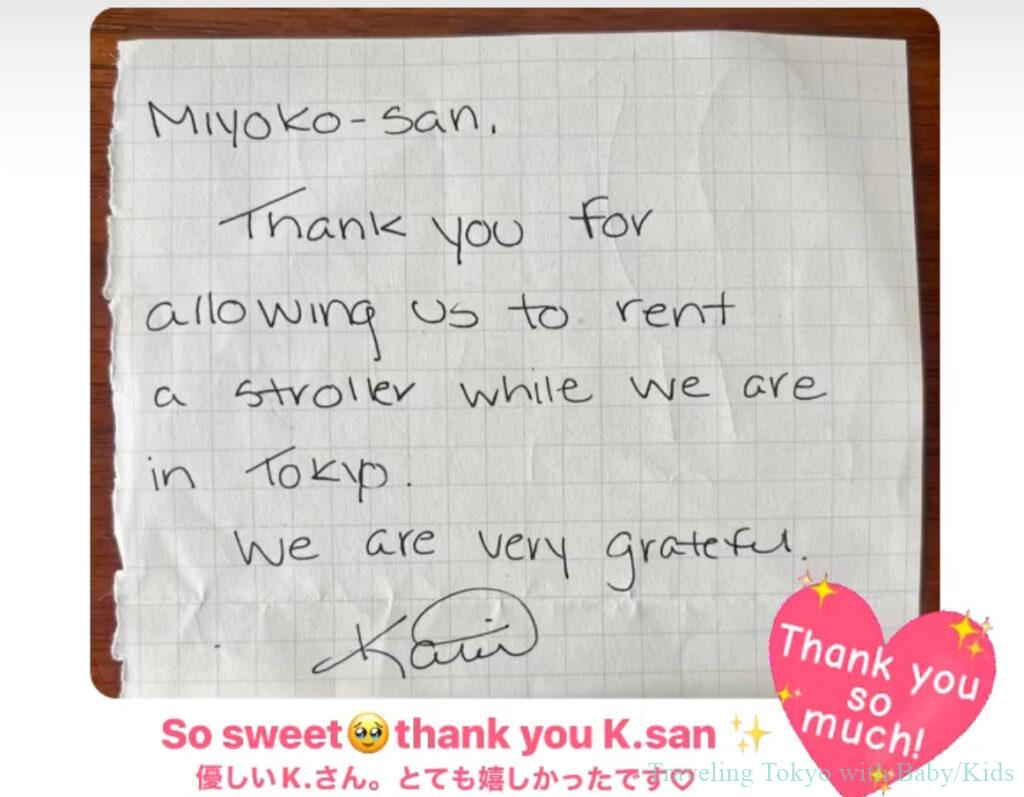 Miyoko-san,
Thank you for
allowing us to rent
a stroller while we are
in Tokyo.
We are very grateful.
Thank you
so
much!
So sweet🥹thank you K.san ✨
優しいK.さん。とても嬉しかったです♡
Traveling Tokyo with Baby/Kids